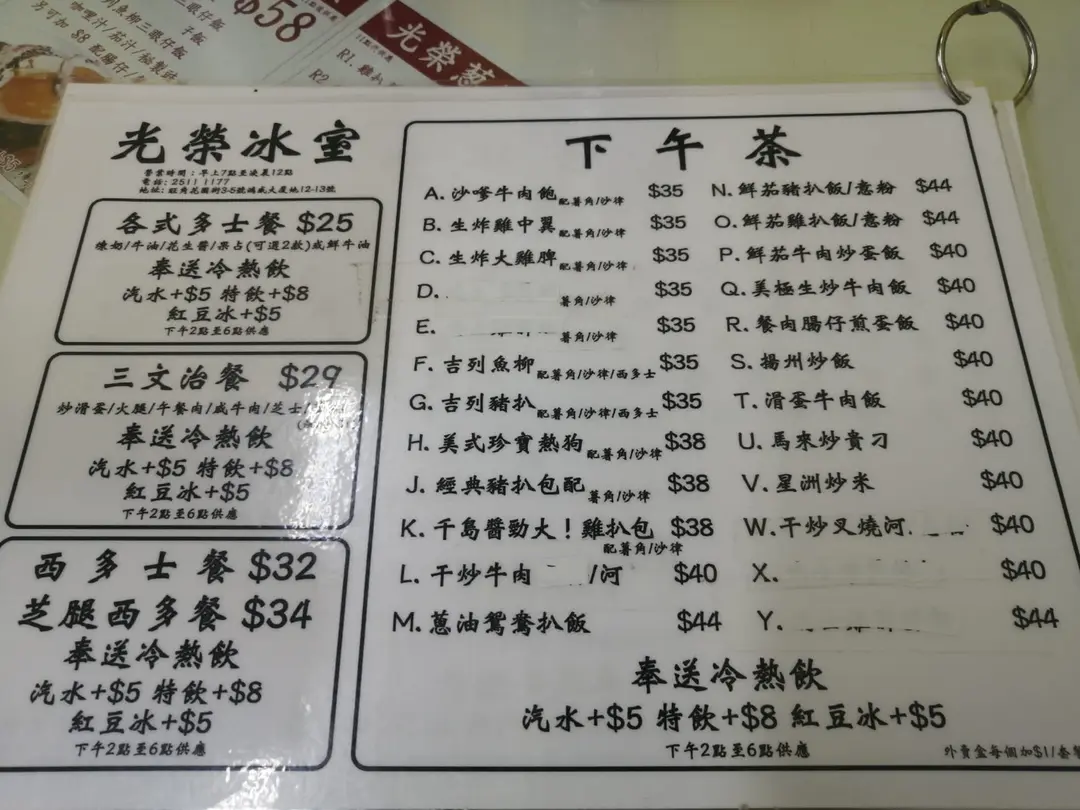 $58
三眼仔飯
魚柳三眼仔飯
咖喱汁/茄汁/秘製豉
另可加 $8 配腸仔/
光榮葱
R1. 雞扒
R2
光榮冰室
營業時間:早上7點至凌晨12點
電話: 2511 1177
地址: 旺角花園街3-5號鴻威大廈地12-13號
各式多士餐 $25
煉奶/牛油/花生醬/果占(可選2款)或鮮牛油
奉送冷熱飲
汽水+$5 特飲+$8
紅豆冰+$5
下午2點至6點供應
三文治餐 $29
炒滑蛋/火腿/午餐肉/咸牛肉/芝士/
奉送冷熱飲
汽水+$5 特飲+$8
紅豆冰+$5
下午2點至6點供應
西多士餐 $32
芝腿西多餐 $34
奉送冷熱飲
汽水+$5 特飲+$8
紅豆冰+$5
下午2點至6點供應
下午茶
A. 沙嗲牛肉飽 配薯角/沙律 $35
B. 生炸雞中翼 配薯角/沙律 $35
C. 生炸大雞脾 配薯角/沙律 $35
D. 薯角/沙律 $35
E. 薯角/沙律 $35
F. 吉列魚柳 配薯角/沙律/西多士 $35
G. 吉列豬扒 配薯角/沙律/西多士 $35
H. 美式珍寶熱狗 配薯角/沙律 $38
J. 經典豬扒包配 薯角/沙律 $38
K. 千島醬勁大!雞扒包 $38
配薯角/沙律
L. 干炒牛肉 /河 $40
M. 蔥油鴛鴦扒飯 $44
N. 鮮茄豬扒飯/意粉 $44
O. 鮮茄雞扒飯/意粉 $44
P. 鮮茄牛肉炒蛋飯 $40
Q. 美極生炒牛肉飯 $40
R. 餐肉腸仔煎蛋飯 $40
S. 揚州炒飯 $40
T. 滑蛋牛肉飯 $40
U. 馬來炒貴刁 $40
V. 星洲炒米 $40
W. 干炒叉燒河. $40
X. $40
Y. $44
奉送冷熱飲
汽水+$5 特飲+$8 紅豆冰+$5
下午2點至6點供應
外賣盒每個加$1/套餐